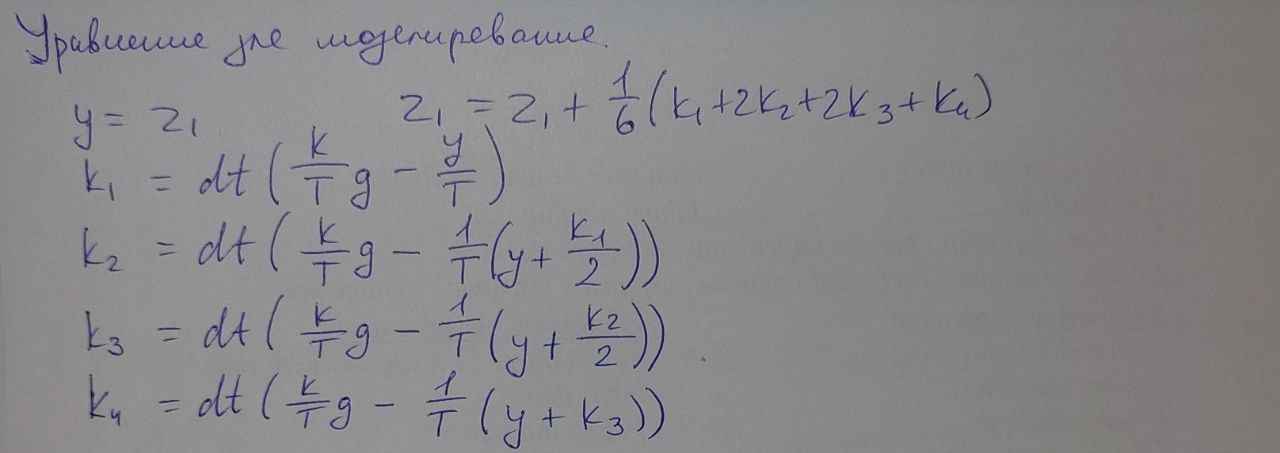 Уравнение для моделирование.
y = z₁ z₁ = z₁ + 1/6 (k₁+2k₂+2k₃+k₄)
k₁ = dt ( k/T g − y/T )
k₂ = dt ( k/T g − 1/T (y + k₁/2))
k₃ = dt ( k/T g − 1/T (y + k₂/2))
k₄ = dt ( k/T g − 1/T (y + k₃))